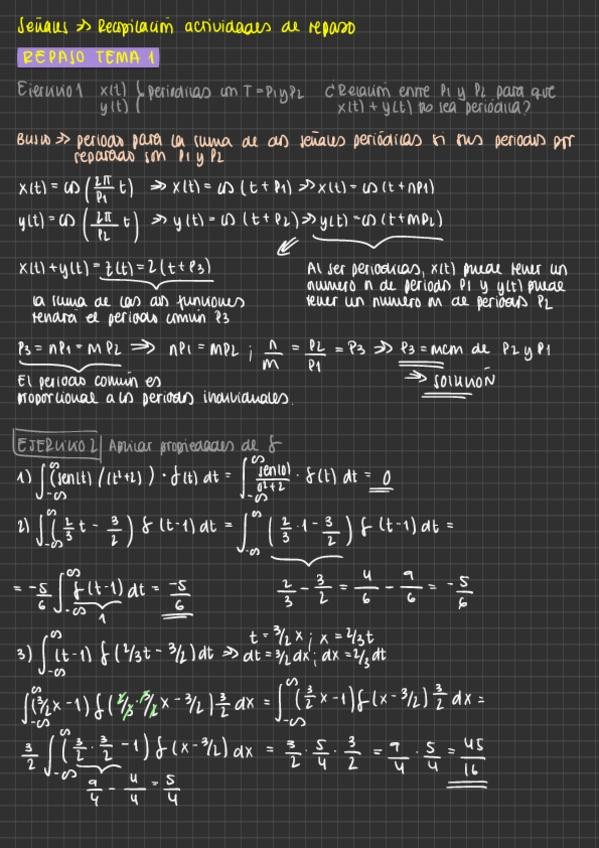 Señales => Recopilación actividades de repaso
REPASO TEMA 1
Ejercicio 1 x(t) { periódicas con T = P1 y P2 ¿Relación entre P1 y P2 para que
y(t) x(t) + y(t) no sea periódica?
Busco => periodo para la suma de dos señales periódicas si sus periodos por
separado son P1 y P2
x(t) = cos (2π/P1 t) => x(t) = cos (t + P1) => x(t) = cos (t + nP1)
y(t) = cos (2π/P2 t) => y(t) = cos (t + P2) => y(t) = cos (t + mP2)
x(t) + y(t) = z(t) = z(t + P3)
la suma de las dos funciones
tendrá el periodo común P3
Al ser periódicas, x(t) puede tener un
numero n de periodo P1 y y(t) puede
tener un numero m de periodos P2
P3 = nP1 = mP2 => nP1 = mP2 ; n/m = P2/P1 = P3 => P3 = mcm de P2 y P1
El periodo común es
proporcional a los periodos individuales.
=> SOLUCIÓN
EJERCICIO 2 Aplicar propiedades de δ
1) ∫_{-∞}^{∞} (sen(t) / (t²+2)) · δ(t) dt = ∫_{-∞}^{∞} sen(0)/(0²+2) · δ(t) dt = 0
2) ∫_{-∞}^{∞} (2/3 t - 3/2) δ(t-1) dt = ∫_{-∞}^{∞} (2/3 · 1 - 3/2) δ(t-1) dt =
= -5/6 ∫_{-∞}^{∞} δ(t-1) dt = -5/6
1
2/3 - 3/2 = 4/6 - 9/6 = -5/6
3) ∫_{-∞}^{∞} (t-1) δ(2/3t - 3/2) dt => t = 3/2 x ; x = 2/3 t
dt = 3/2 dx ; dx = 2/3 dt
∫_{-∞}^{∞} (3/2 x - 1) δ(2/3 · 3/2 x - 3/2) 3/2 dx = ∫_{-∞}^{∞} (3/2 x - 1) δ(x - 3/2) 3/2 dx =
3/2 ∫_{-∞}^{∞} (3/2 · 3/2 - 1) δ(x - 3/2) dx = 3/2 · 5/4 · 3/2 = 9/4 · 5/4 = 45/16
9/4 - 4/4 = 5/4